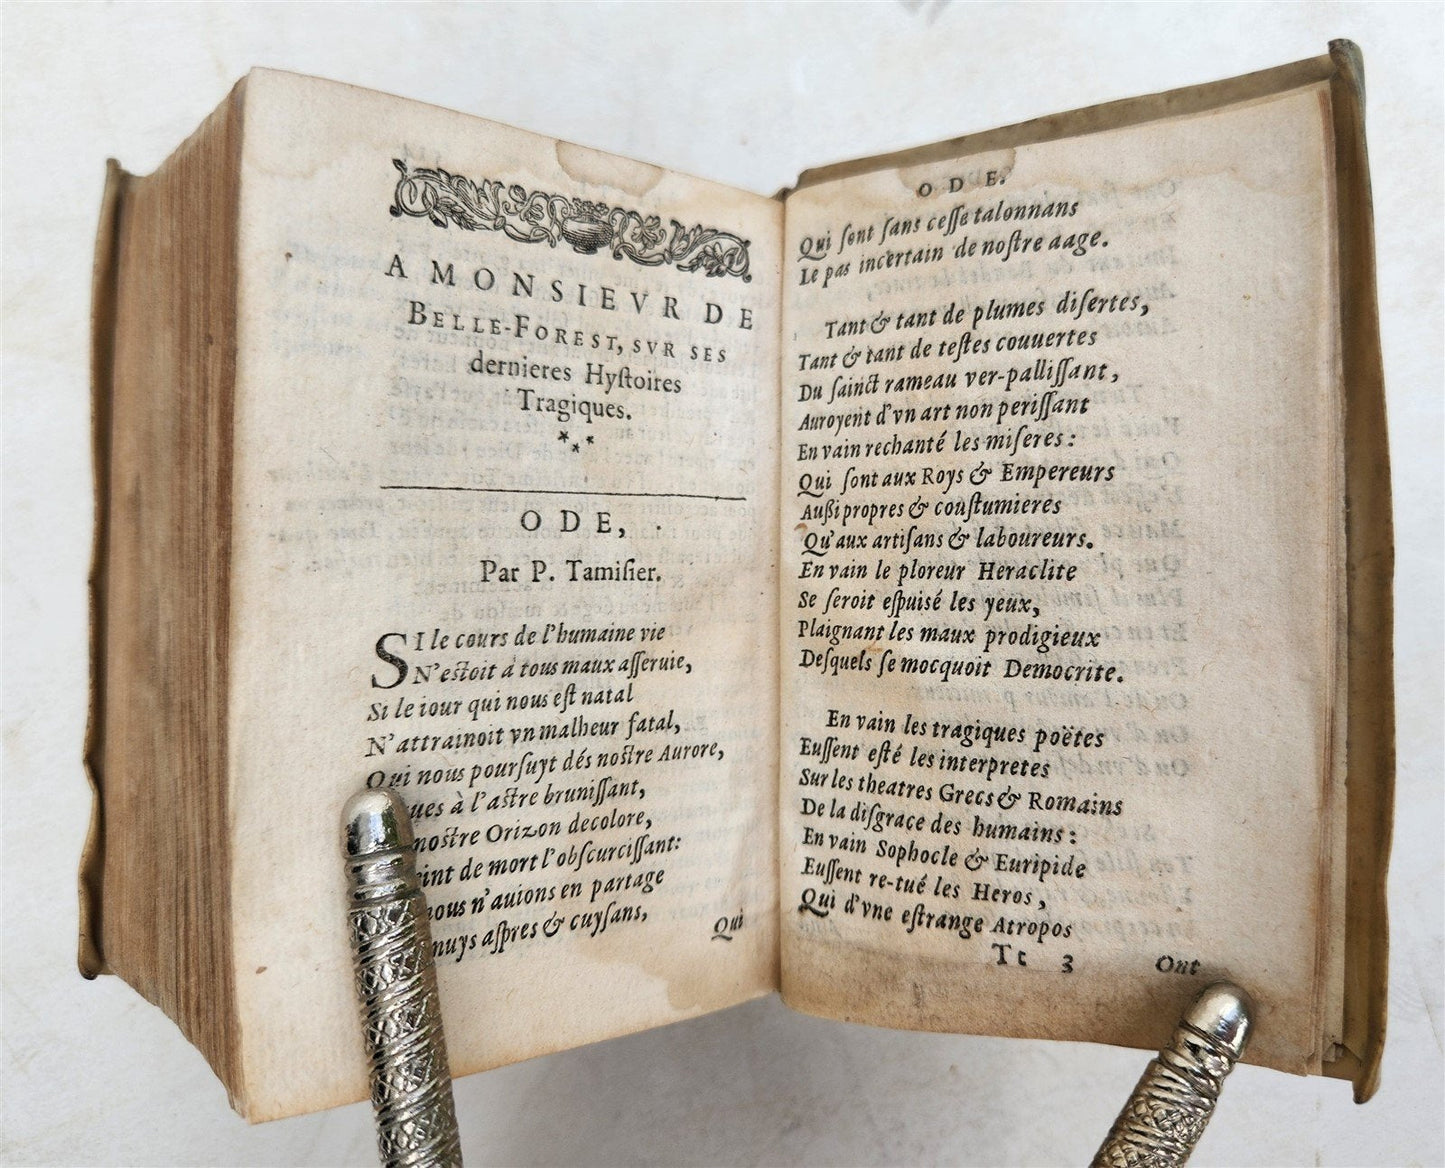 A MONSIEVR DE
BELLE-FOREST, SVR SES
dernieres Hyſtoires
Tragiques.
***
ODE,
Par P. Tamiſier.
SI le cours de l'humaine vie
N'estoit à tous maux aſſeruie,
Si le iour qui nous eſt natal
N'attrainoit vn malheur fatal,
Qui nous pourſuyt dés noſtre Aurore,
ues à l'aſtre bruniſſant,
noſtre Orizon decolore,
eint de mort l'obſcurciſſant:
nous n'auions en partage
nuys aſpres & cuyſans,
Qui
ODE.
Qui ſont ſans ceſſe talonnans
Le pas incertain de noſtre aage.
Tant & tant de plumes diſertes,
Tant & tant de teſtes couuertes
Du ſainct rameau ver-palliſſant,
Auroyent d'vn art non periſſant
En vain rechanté les miſeres:
Qui ſont aux Roys & Empereurs
Außi propres & couſtumieres
Qu'aux artiſans & laboureurs.
En vain le ploreur Heraclite
Se ſeroit eſpuisé les yeux,
Plaignant les maux prodigieux
Deſquels ſe mocquoit Democrite.
En vain les tragiques poëtes
Euſſent eſté les interpretes
Sur les theatres Grecs & Romains
De la diſgrace des humains:
En vain Sophocle & Euripide
Euſſent re-tué les Heros,
Qui d'vne eſtrange Atropos
Tt 3
Ont